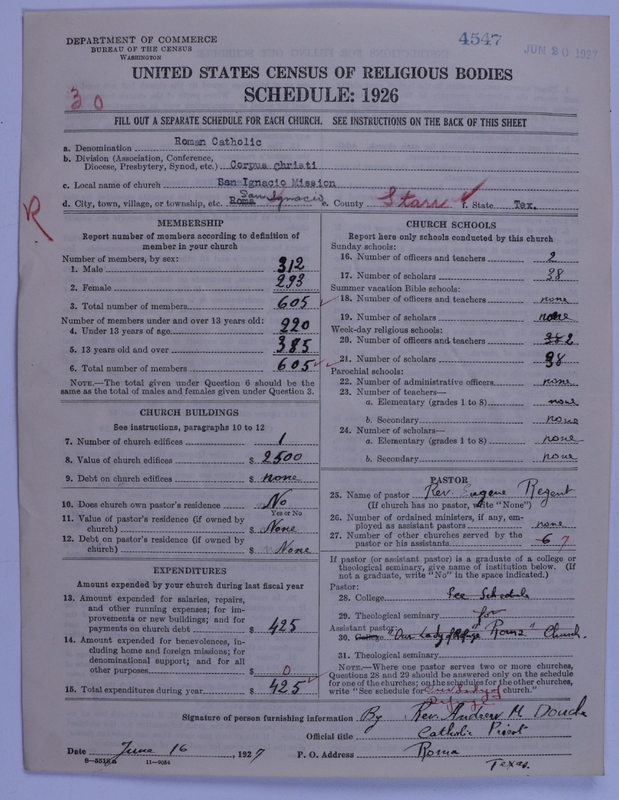 4547
JUN 20 1927
DEPARTMENT OF COMMERCE
BUREAU OF THE CENSUS
WASHINGTON
UNITED STATES CENSUS OF RELIGIOUS BODIES
SCHEDULE: 1926
30
FILL OUT A SEPARATE SCHEDULE FOR EACH CHURCH. SEE INSTRUCTIONS ON THE BACK OF THIS SHEET
a. Denomination Roman Catholic
b. Division (Association, Conference,
Diocese, Presbytery, Synod, etc.) Corpus Christi
c. Local name of church San Ignacio Mission
d. City, town, village, or township, etc. Roma San Ignacio e. County Starr f. State Tex.
R
MEMBERSHIP
Report number of members according to definition of
member in your church
Number of members, by sex:
1. Male 312
2. Female 293
3. Total number of members 605
Number of members under and over 13 years old:
4. Under 13 years of age 220
5. 13 years old and over 385
6. Total number of members 605
NOTE.—The total given under Question 6 should be the
same as the total of males and females given under Question 3.
CHURCH BUILDINGS
See instructions, paragraphs 10 to 12
7. Number of church edifices 1
8. Value of church edifices $ 2500
9. Debt on church edifices $ none
10. Does church own pastor's residence No
Yes or No
11. Value of pastor's residence (if owned by
church) $ None
12. Debt on pastor's residence (if owned by
church) $ None
EXPENDITURES
Amount expended by your church during last fiscal year
13. Amount expended for salaries, repairs,
and other running expenses; for im-
provements or new buildings; and for
payments on church debt $ 425
14. Amount expended for benevolences, in-
cluding home and foreign missions; for
denominational support; and for all
other purposes $ 0
15. Total expenditures during year $ 425
CHURCH SCHOOLS
Report here only schools conducted by this church
Sunday schools:
16. Number of officers and teachers 2
17. Number of scholars 38
Summer vacation Bible schools:
18. Number of officers and teachers none
19. Number of scholars none
Week-day religious schools:
20. Number of officers and teachers 2
21. Number of scholars 38
Parochial schools:
22. Number of administrative officers none
23. Number of teachers—
a. Elementary (grades 1 to 8) none
b. Secondary none
24. Number of scholars—
a. Elementary (grades 1 to 8) none
b. Secondary none
PASTOR
25. Name of pastor Rev. Eugene Regent
(If church has no pastor, write "None")
26. Number of ordained ministers, if any, em-
ployed as assistant pastors none
27. Number of other churches served by the
pastor or his assistants 6 7
If pastor (or assistant pastor) is a graduate of a college or
theological seminary, give name of institution below. (If
not a graduate, write "No" in the space indicated.)
Pastor:
28. College See Schedule
29. Theological seminary for
Assistant pastor:
30. College Our Lady of Refuge "Roma" Church.
31. Theological seminary
NOTE.—Where one pastor serves two or more churches,
Questions 28 and 29 should be answered only on the schedule
for one of the churches; on the schedules for the other churches,
write "See schedule for Our Lady of church."
Refuge
Signature of person furnishing information By Rev. Andrew M.
Official title Catholic Priest
Date June 16, 1927 P. O. Address Roma
Texas.
11—9084